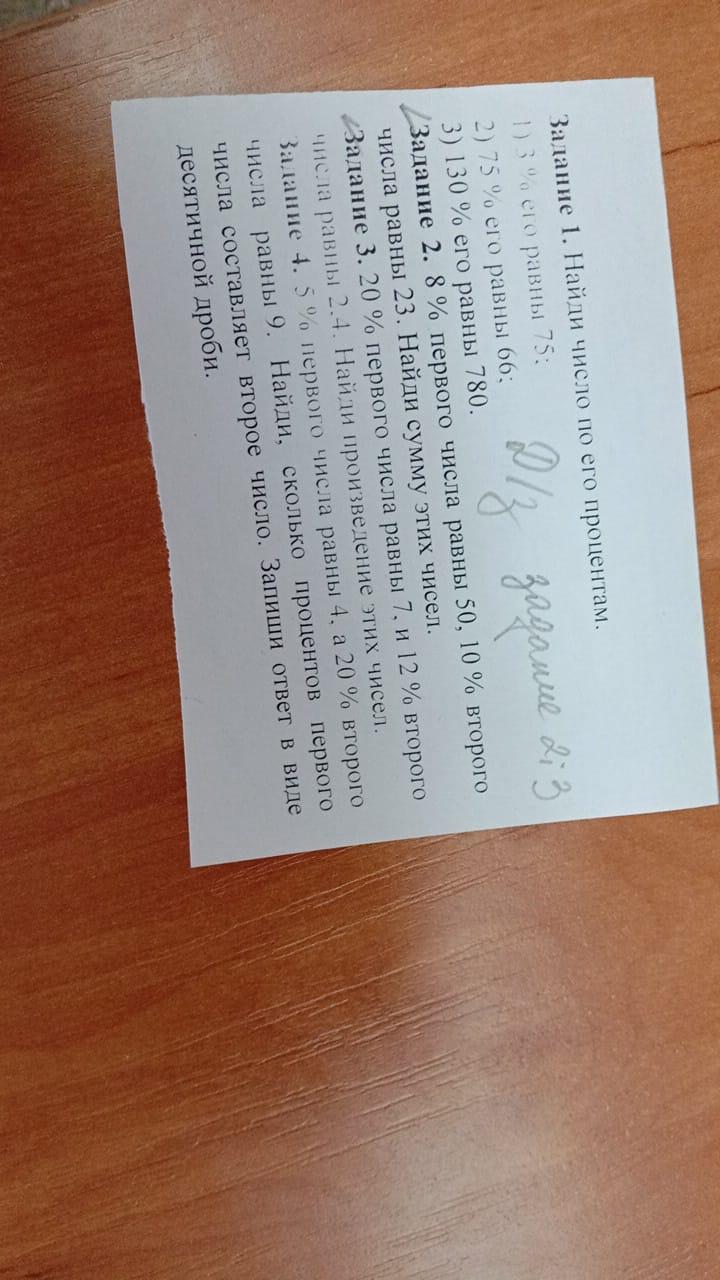 Задание 1. Найди число по его процентам.
1) 3 % его равны 75;
2) 75 % его равны 66;
3) 130 % его равны 780.
Д/з задание 2; 3
Задание 2. 8 % первого числа равны 50, 10 % второго
числа равны 23. Найди сумму этих чисел.
Задание 3. 20 % первого числа равны 7, и 12 % второго
числа равны 2.4. Найди произведение этих чисел.
Задание 4. 5 % первого числа равны 4, а 20 % второго
числа равны 9. Найди, сколько процентов первого
числа составляет второе число. Запиши ответ в виде
десятичной дроби.